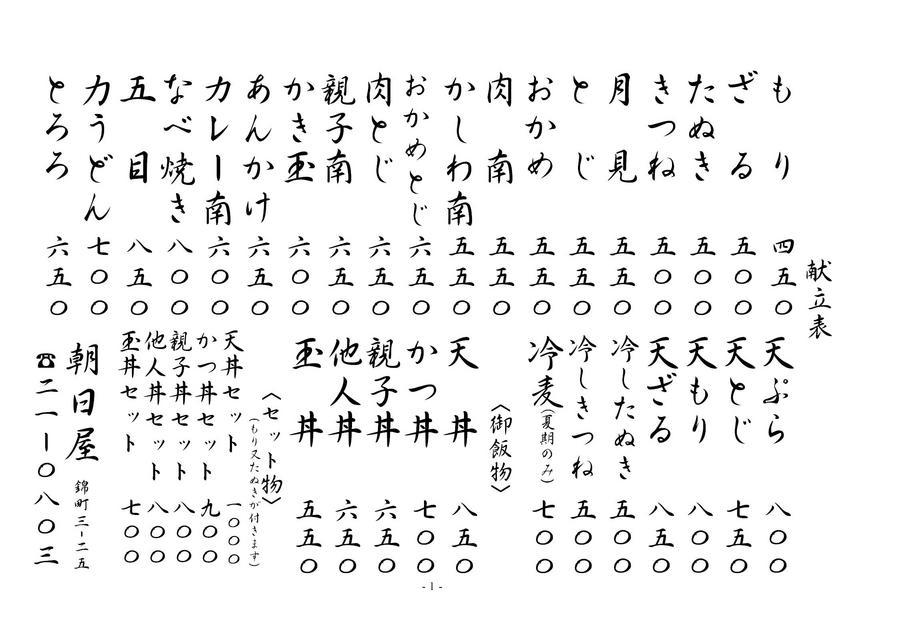 献立表
もり 四五〇
ざる 五〇〇
たぬき 五〇〇
きつね 五〇〇
月見 五五〇
とじ 五五〇
おかめ 五五〇
肉南 五五〇
かしわ南 五五〇
おかめとじ 六五〇
肉とじ 六五〇
親子南 六五〇
かき玉 六〇〇
あんかけ 六五〇
カレー南 六〇〇
なべ焼き 八〇〇
五目 八五〇
力うどん 七〇〇
とろろ 六五〇
天ぷら 八〇〇
天とじ 七五〇
天もり 八〇〇
天ざる 八五〇
冷したぬき 五〇〇
冷しきつね 五〇〇
冷麦(夏期のみ) 七〇〇
〈御飯物〉
天丼 八五〇
かつ丼 七〇〇
親子丼 六五〇
他人丼 六五〇
玉丼 五五〇
〈セット物〉
(もり又たぬきが付きます)
天丼セット 一〇〇〇
かつ丼セット 九〇〇
親子丼セット 八〇〇
他人丼セット 八〇〇
玉丼セット 七〇〇
朝日屋 錦町三ー二五
☎二一ー〇八〇三
- 1 -